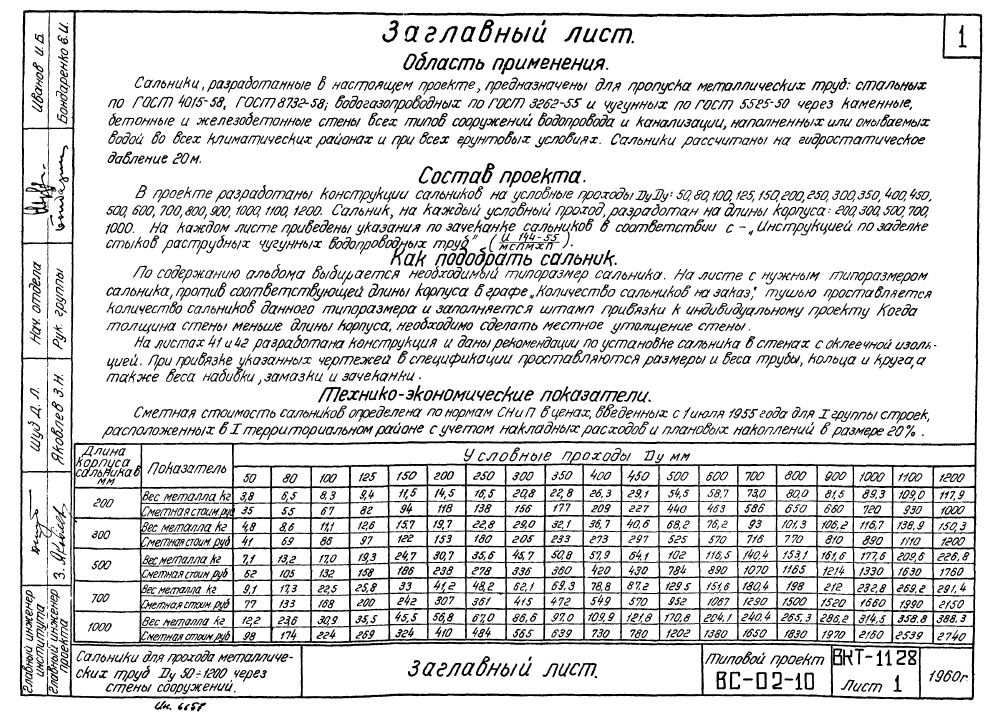 Заглавный лист.
1
Область применения.
Сальники, разработанные в настоящем проекте, предназначены для пропуска металлических труб: стальных
по ГОСТ 4015-58, ГОСТ 8732-58; водогазопроводных по ГОСТ 3262-55 и чугунных по ГОСТ 5525-50 через каменные,
бетонные и железобетонные стены всех типов сооружений водопровода и канализации, наполненных или омываемых
водой во всех климатических районах и при всех грунтовых условиях. Сальники рассчитаны на гидростатическое
давление 20 м.
Состав проекта.
В проекте разработаны конструкции сальников на условные проходы Ду Ду: 50, 80, 100, 125, 150, 200, 250, 300, 350, 400, 450,
500, 600, 700, 800, 900, 1000, 1100, 1200. Сальник, на каждый условный проход, разработан на длины корпуса: 200, 300, 500, 700,
1000. На каждом листе приведены указания по зачеканке сальников в соответствии с - „Инструкцией по заделке
стыков раструбных чугунных водопроводных труб" (И 144-55 / МСПМХП).
Как подобрать сальник.
По содержанию альбома выбирается необходимый типоразмер сальника. На листе с нужным типоразмером
сальника, против соответствующей длины корпуса в графе „Количество сальников на заказ," тушью проставляется
количество сальников данного типоразмера и заполняется штамп привязки к индивидуальному проекту Когда
толщина стены меньше длины корпуса, необходимо сделать местное утолщение стены.
На листах 41 и 42 разработана конструкция и даны рекомендации по установке сальника в стенах с оклеечной изоль-
цией. При привязке указанных чертежей в спецификации проставляются размеры и веса трубы, кольца и круга, а
также веса набивки, замазки и зачеканки.
Технико-экономические показатели.
Сметная стоимость сальников определена по нормам СНиП в ценах, введенных с 1 июля 1955 года для I группы строек,
расположенных в I территориальном районе с учетом накладных расходов и плановых накоплений в размере 20%.
Длина корпуса сальника в мм Показатель Условные проходы Ду мм
50 80 100 125 150 200 250 300 350 400 450 500 600 700 800 900 1000 1100 1200
200 Вес металла кг 3,8 6,5 8,3 9,4 11,5 14,5 16,5 20,8 22,8 26,3 29,1 54,5 58,7 73,0 80,0 81,5 89,3 109,0 117,9
Сметная стоим. руб 35 55 67 82 94 118 138 156 177 209 227 440 463 586 650 660 720 930 1000
300 Вес металла кг 4,8 8,6 11,1 12,6 15,7 19,7 22,8 29,0 32,1 36,7 40,6 68,2 76,2 93 101,3 106,2 116,7 138,9 150,3
Сметная стоим. руб 41 69 86 97 122 153 180 205 233 273 297 525 570 716 770 810 890 1110 1200
500 Вес металла кг 7,1 13,2 17,0 19,3 24,7 30,7 35,6 45,7 50,8 57,9 64,1 102 116,5 140,4 153,1 161,6 177,6 209,6 226,8
Сметная стоим. руб 62 105 132 158 186 238 278 336 360 420 430 784 890 1070 1165 1214 1330 1630 1760
700 Вес металла кг 9,1 17,3 22,5 25,8 33 41,2 48,2 62,1 69,3 78,8 87,2 129,5 151,6 180,4 198 212 232,8 269,2 291,4
Сметная стоим. руб 77 133 168 200 242 307 361 415 472 549 570 952 1067 1290 1500 1520 1660 1990 2150
1000 Вес металла кг 12,2 23,6 30,9 35,5 45,5 56,8 67,0 86,6 97,0 109,9 121,8 170,8 204,1 240,4 265,3 286,2 314,5 358,8 388,3
Сметная стоим. руб 98 174 224 269 324 410 484 565 639 730 780 1202 1380 1650 1830 1970 2160 2539 2740
Сальники для прохода металличе-
ских труб Ду 50÷1200 через
стены сооружений.
Заглавный лист.
Типовой проект
ВС-02-10
ВКТ-1128
Лист 1
1960г.
Главный инженер института
Шуб Д. Л.
Нач. отдела
Иванов И.Б.
Главный инженер проекта
Яковлев З.Н.
Рук. группы
Бондаренко Е.И.
Ин. 6658